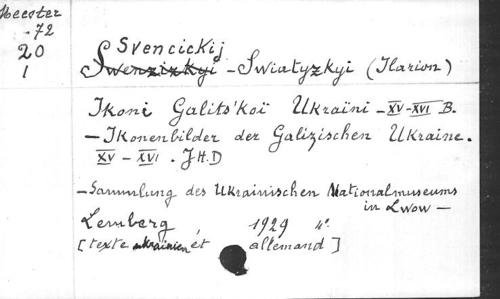 Meester
-72
20
1
Svencickij
Swenzizkyi - Swiatyzkyi (Ilarion)
Ikoni Galits'koï Ukraïni - XV-XVI B.
- Ikonenbilder der Galizischen Ukraine.
XV - XVI . JH.D
- Sammlung des Ukrainischen Nationalmuseums
in Lwow -
Lemberg, 1929 4°.
[texte ukrainien et allemand]